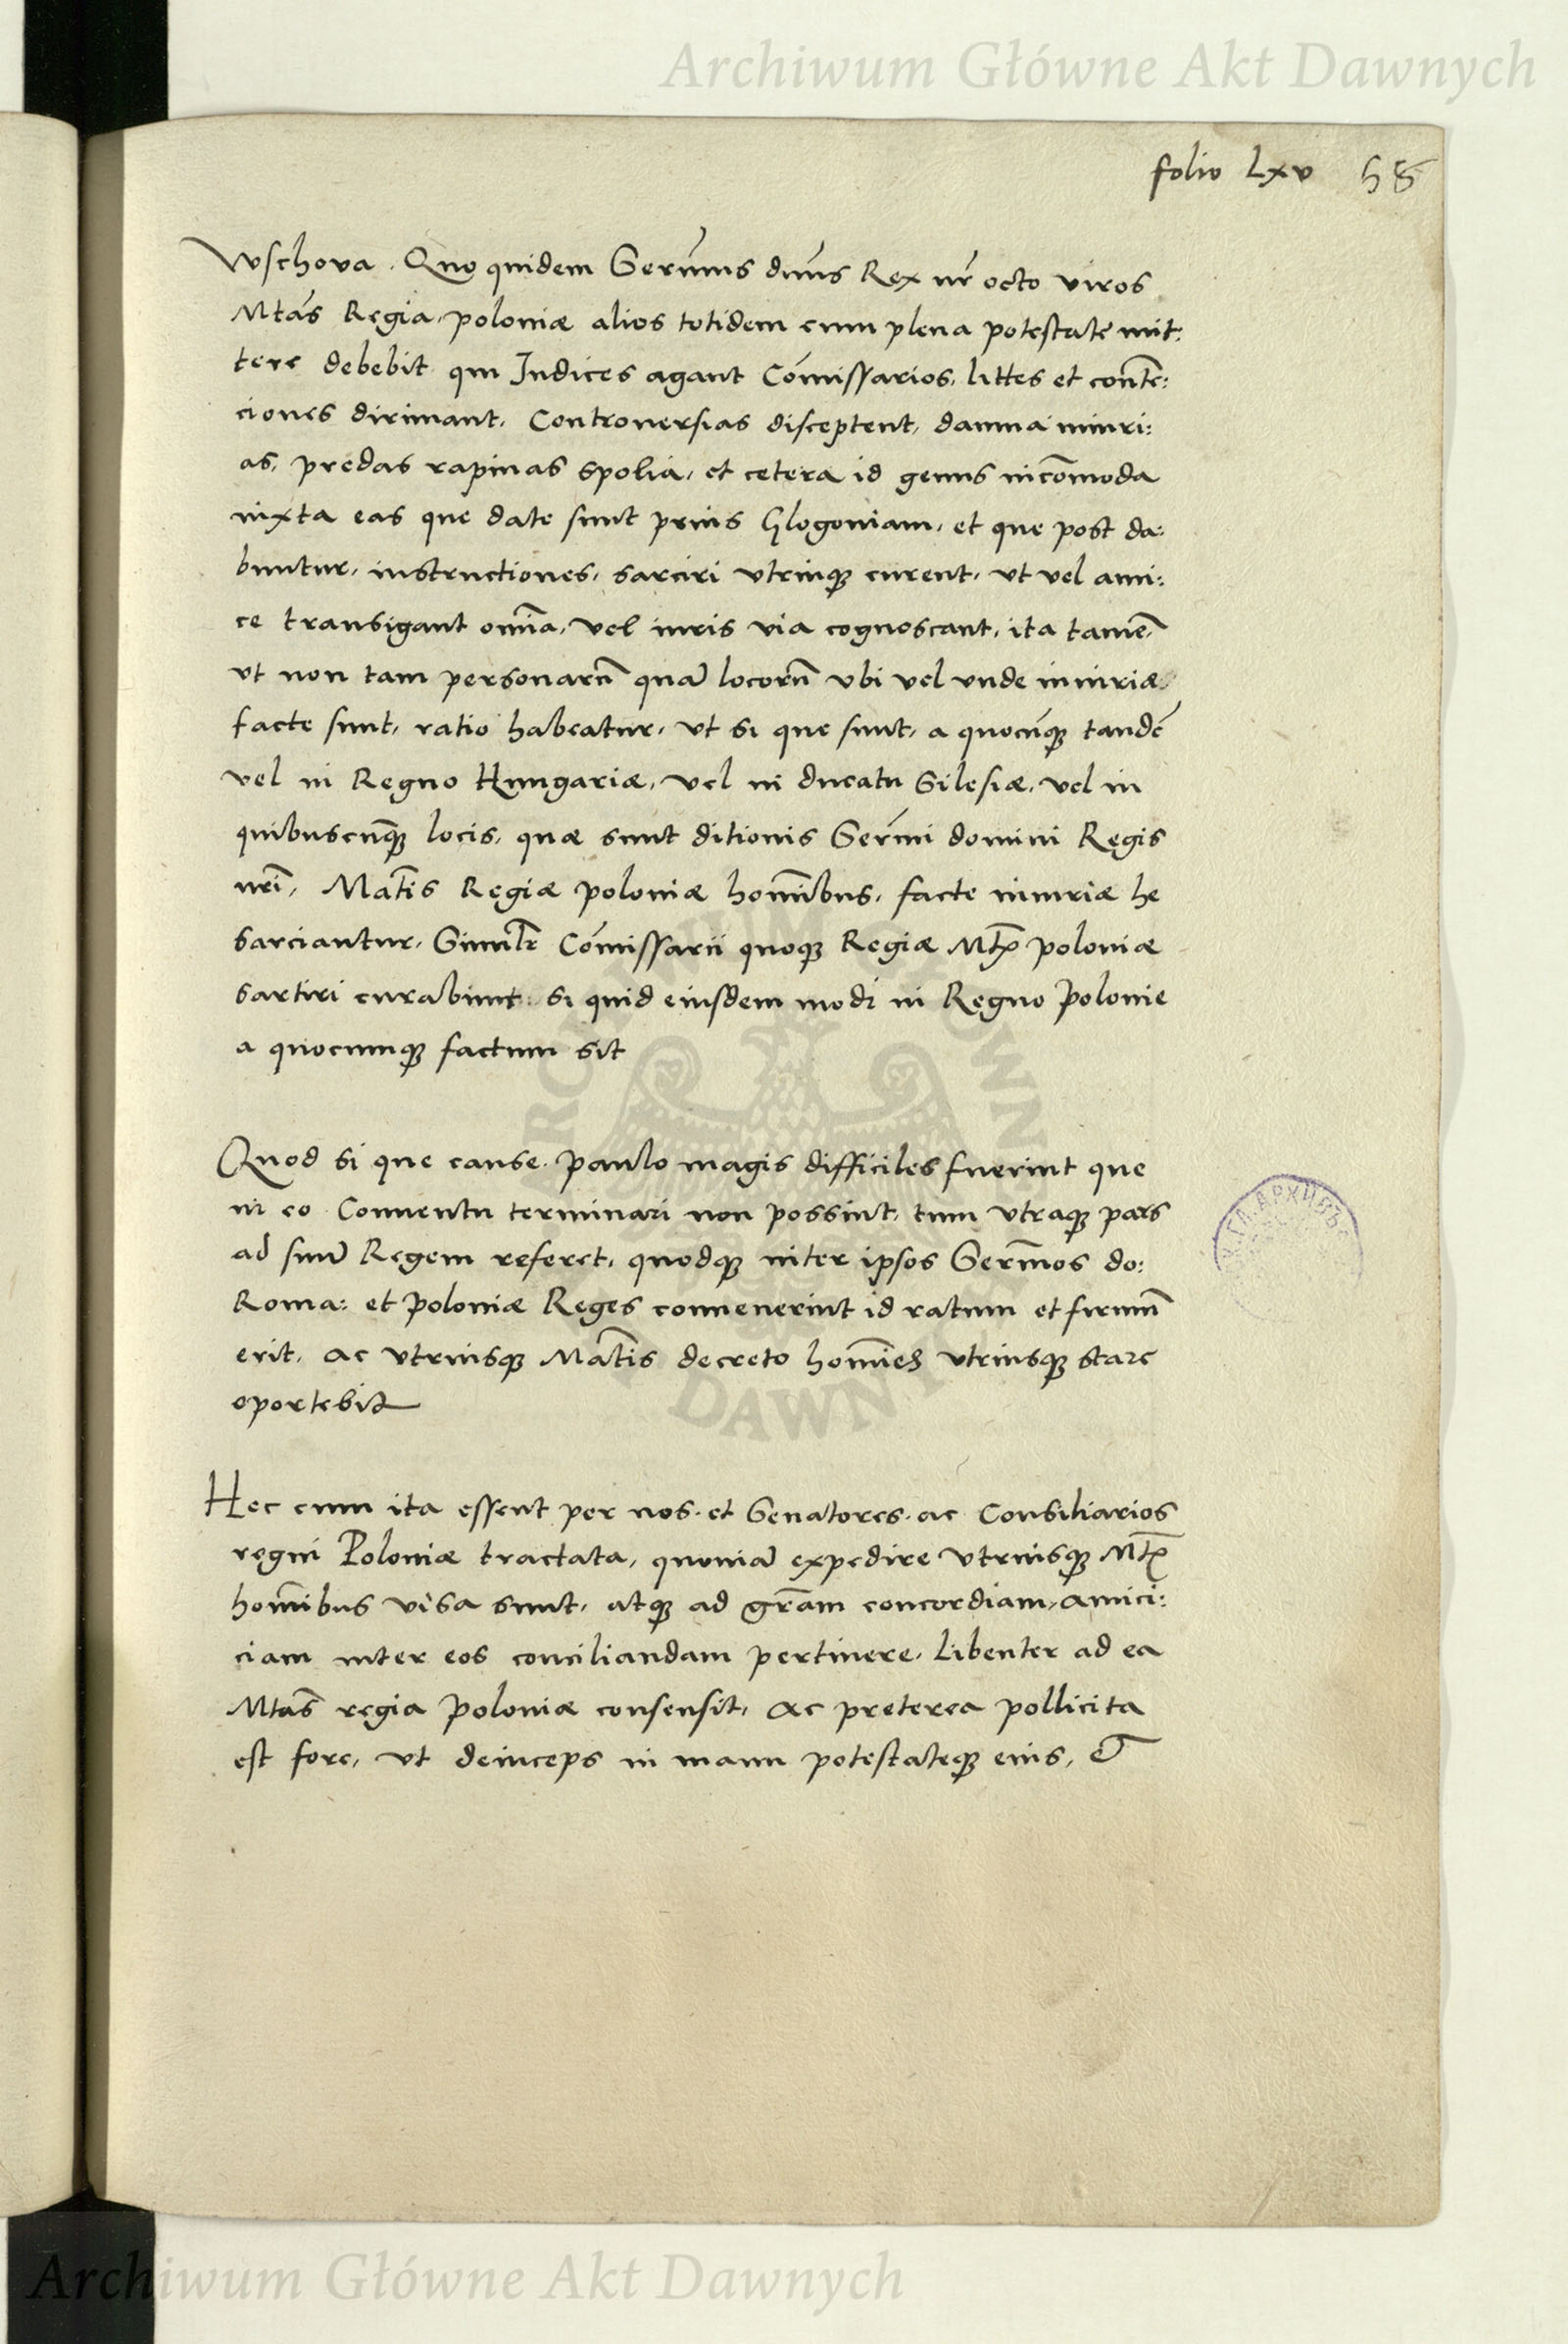 Archiwum Główne Akt Dawnych
folio Lxv 58
Wschova. Quo quidem Serm̄us dn̄us Rex nr̄ octo viros
Mtas̄ Regia, poloniæ alios totidem cum plena potestate mit:
tere debebit qui Iudices agant Com̄issarios, littes et conte̅:
ciones dirimant, Controversias disceptent, damna iniuri:
as, predas rapinas spolia, et cetera id genus incom̄oda
iuxta eas que date sunt prius Glogoniam, et que post da:
buntur, instructiones, sarciri utrinqꝫ curent, ut vel ami:
ce transigant omn̄ia, vel iuris via cognoscant, ita tame̅,
ut non tam personaru̅ qua̅ locoru̅ ubi vel unde iniuriæ
facte sunt, ratio habeatur, ut si que sunt, a quocu̅qꝫ tande̅
vel in Regno Hungariæ, vel in ducatu Silesiæ, vel in
quibuscu̅qꝫ locis, quæ sunt ditionis Serm̄i domini Regis
nrī, Matīs Regiæ poloniæ homi̅bus, facte iniuriæ he
sarciantur, Similr̄ Com̄issarii quoqꝫ Regiæ Mtꝭ poloniæ
sartiri curabunt si quid eiusdem modi in Regno Polonie
a quocumqꝫ factum sit
Quod si que cause paulo magis difficiles fuerint que
in eo Conventu terminari non possint, tum utraqꝫ pars
ad suu̅ Regem referet, quodqꝫ inter ipsos Serm̄os do:
Roma: et poloniæ Reges convenerint id ratum et firmu̅
erit, ac utriusqꝫ Matīs decreto homi̅es utriusqꝫ stare
oportebit
Hec cum ita essent per nos et Senatores ac Consiliarios
regni Poloniæ tractata, quonia̅ expedire utriusqꝫ Mtꝭ
homi̅bus visa sunt, atqꝫ ad gra̅m concordiam, amici:
ciam inter eos conciliandam pertinere, libenter ad ea
Mtas̄ regia Poloniæ consensit, ac preterea pollicita
est fore, ut deinceps in manu potestateqꝫ eius, &
DAWNY
Archiwum Główne Akt Dawnych